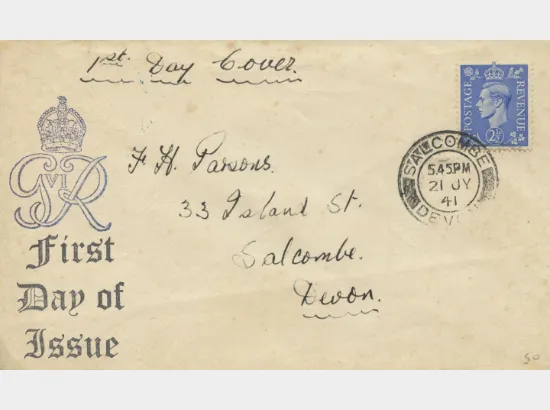 1st. Day Cover.
POSTAGE REVENUE
2½D
GVIR
First
Day of
Issue
F. H. Parsons.
33 Island St.
Salcombe.
Devon.
SALCOMBE
5.45PM
21 JY
41
DEVON
50